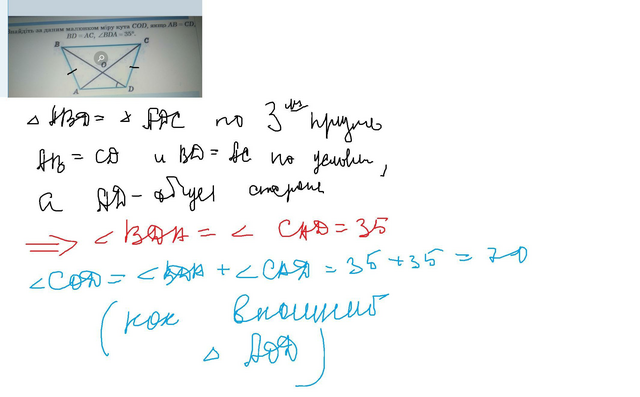 Знайдіть за даним малюнком міру кута COD, якщо AB = CD,
BD = AC, ∠BDA = 35°.
B
C
O
A
D
△ ABD = △ DAC по 3
AB = CD и BD = AC по условию,
а AD - общая сторона
⇒ ∠BDA = ∠CAD = 35
∠COD = ∠BDA + ∠CAD = 35 + 35 = 70
(как внешний
△ AOD)